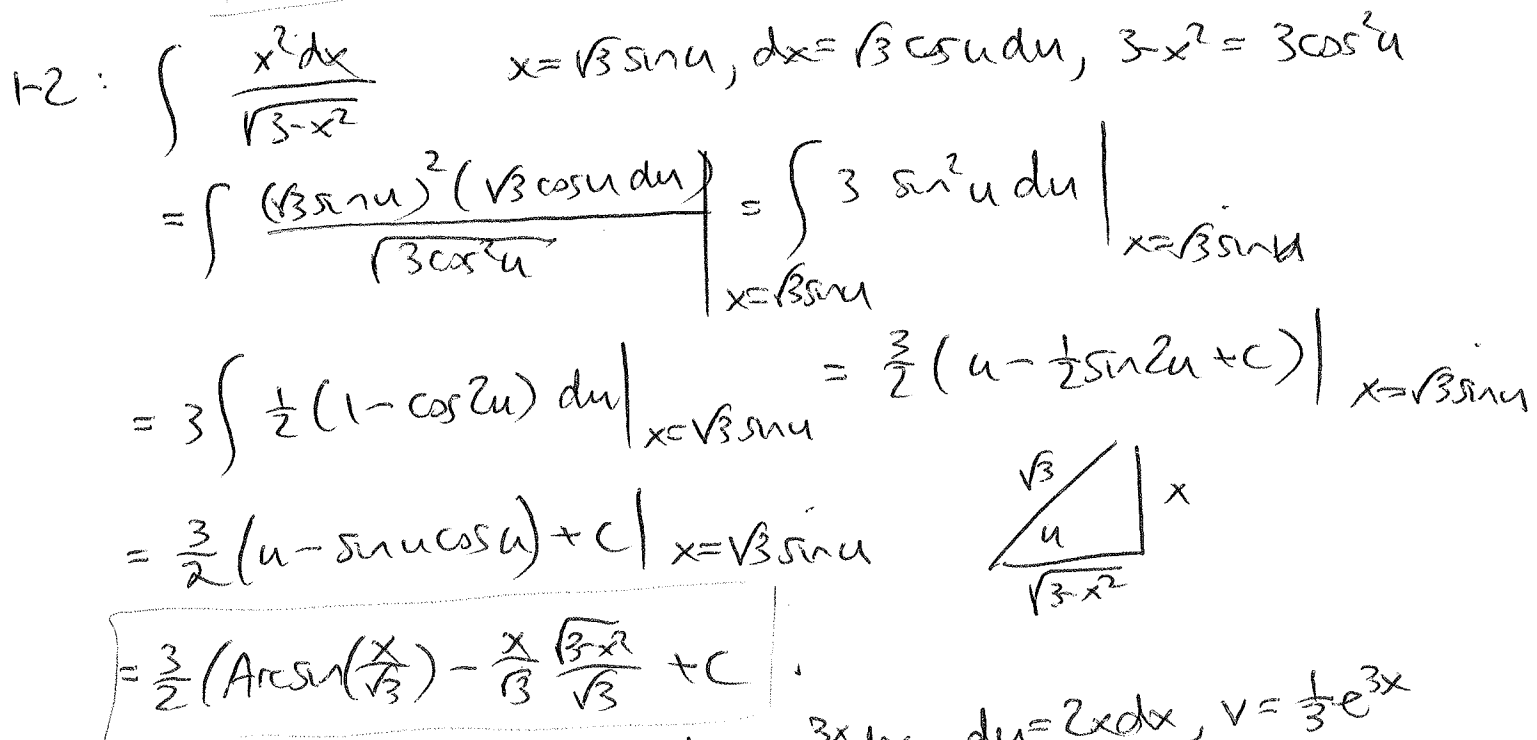 1-2: ∫ x²dx / √(3-x²)   x=√3 sinu, dx=√3 cosudu, 3-x² = 3cos²u
= ∫ (√3sinu)²(√3 cosu du) / √(3cos²u) |x=√3sinu = ∫ 3 sin²u du |x=√3sinu
= 3∫ ½(1-cos2u) du |x=√3sinu = 3/2 (u-½sin2u+c) |x=√3sinu
= 3/2 (u-sinucosu)+c | x=√3sinu   √3 x u √(3-x²)
= 3/2 (Arcsin(x/√3) - x/√3 √(3-x²)/√3 +C .
du=2xdx, v=⅓e^3x